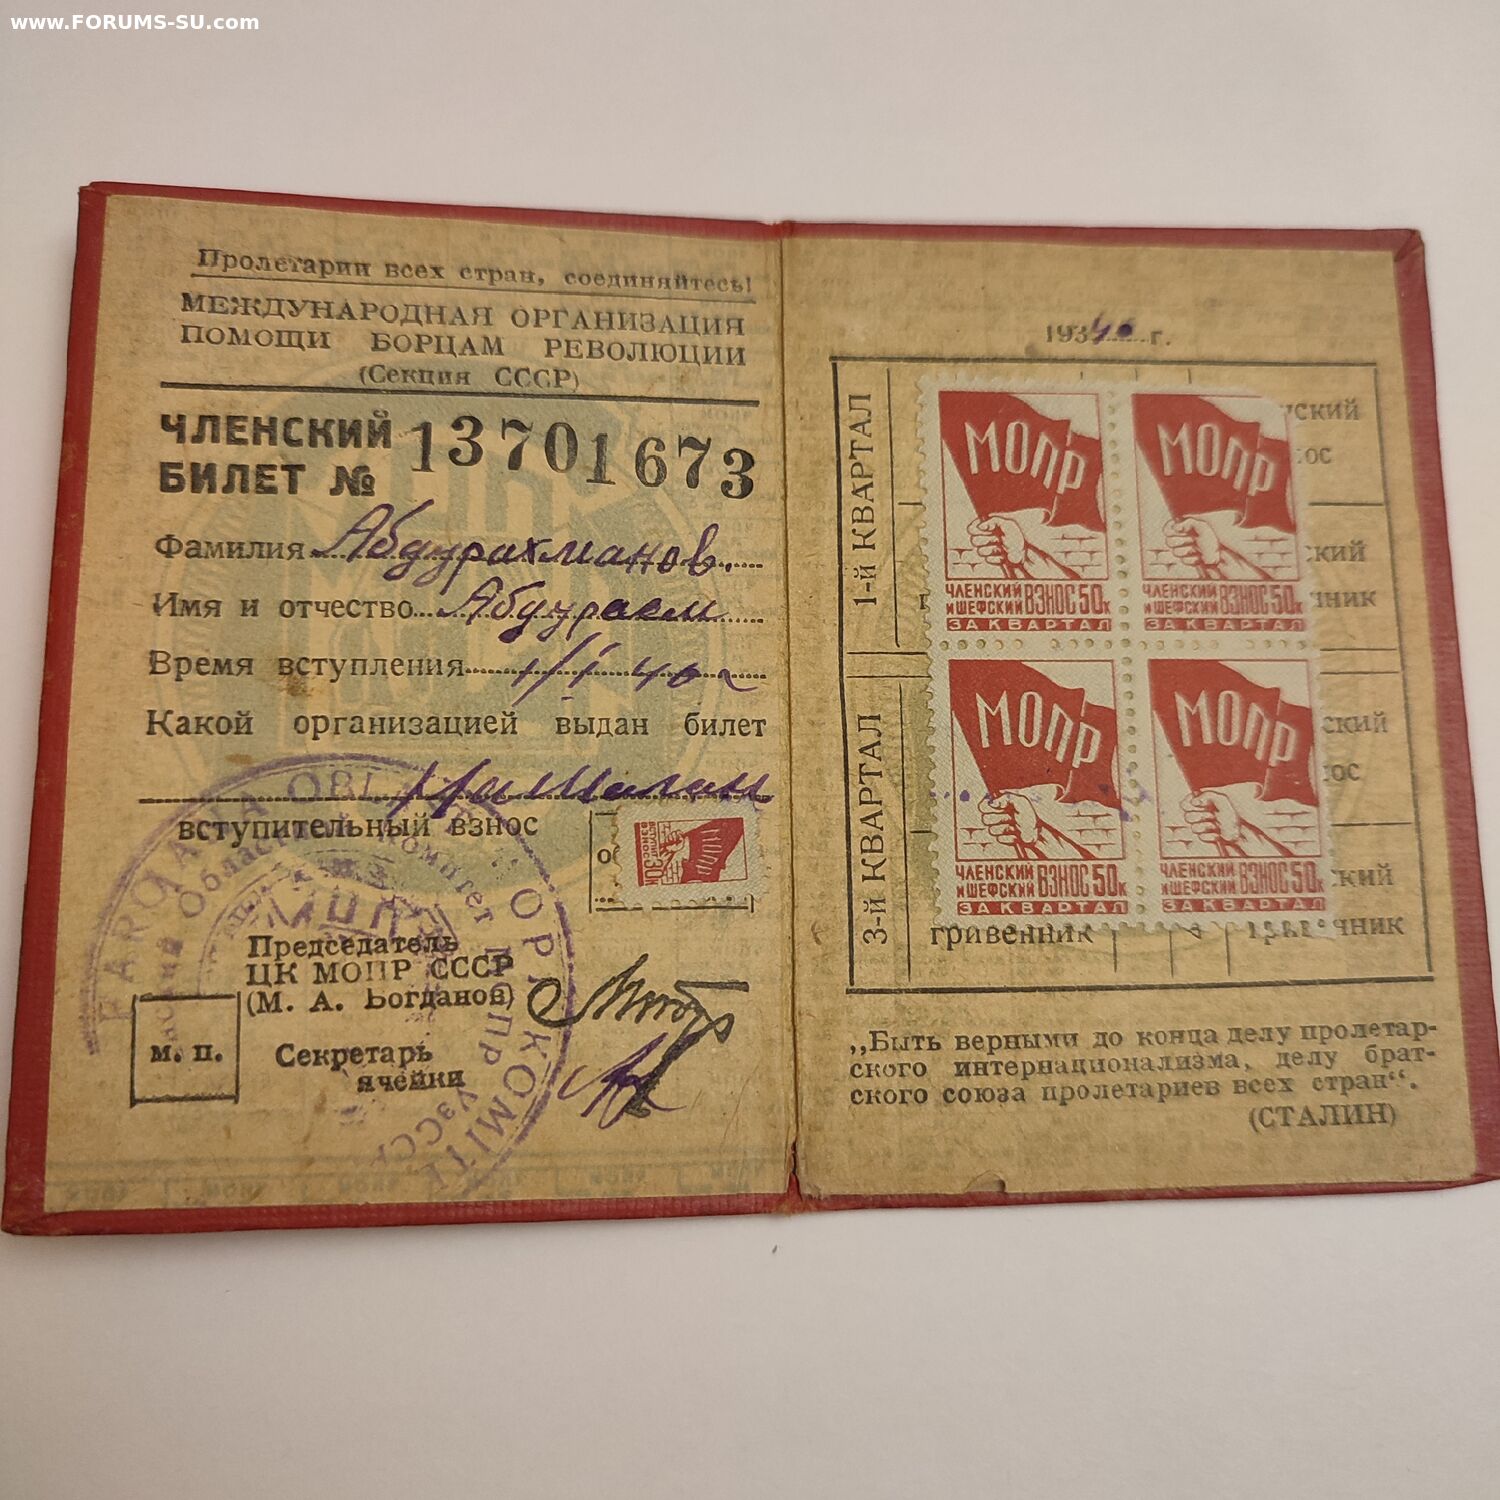 www.FORUMS-SU.com
Пролетарии всех стран, соединяйтесь!
МЕЖДУНАРОДНАЯ ОРГАНИЗАЦИЯ
ПОМОЩИ БОРЦАМ РЕВОЛЮЦИИ
(Секция СССР)
ЧЛЕНСКИЙ
БИЛЕТ № 13701673
Фамилия Абдурахманов.
Имя и отчество
Время вступления 1/I 40 г
Какой организацией выдан билет
вступительный взнос
МОПР
ВСТУПИТ. ВЗНОС 30К
Председатель
ЦК МОПР СССР
(М. А. Богданов)
м. п.
Секретарь
ячейки
Областной Комитет МОПР УзССР
193 г.
1-й КВАРТАЛ
МОПР
ЧЛЕНСКИЙ И ШЕФСКИЙ ВЗНОС 50к
ЗА КВАРТАЛ
МОПР
ЧЛЕНСКИЙ И ШЕФСКИЙ ВЗНОС 50к
ЗА КВАРТАЛ
3-й КВАРТАЛ
МОПР
ЧЛЕНСКИЙ И ШЕФСКИЙ ВЗНОС 50к
ЗА КВАРТАЛ
МОПР
ЧЛЕНСКИЙ И ШЕФСКИЙ ВЗНОС 50к
ЗА КВАРТАЛ
гривенник
„Быть верными до конца делу пролетар-
ского интернационализма, делу брат-
ского союза пролетариев всех стран“.
(СТАЛИН)